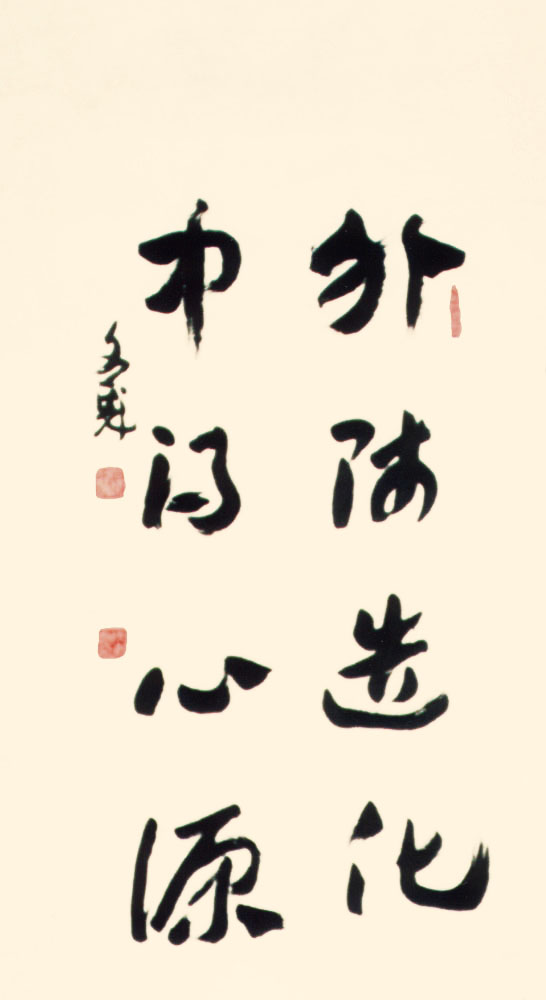 外师造化
中得心源